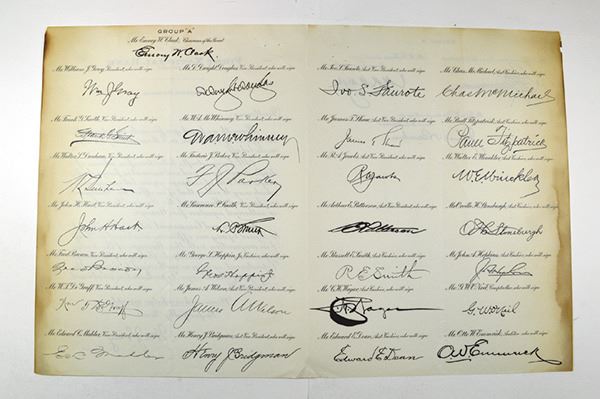 GROUP "A"
Mr. Emory W. Clark, Chairman of the Board
Emory W. Clark
Mr. William J. Gray, Vice President, who will sign
Mr. G. Dwight Douglas, Vice President, who will sign
Mr. Ivo S. Faurote, Asst. Cashier, who will sign
Mr. Chas. McMichael, Asst. Cashier, who will sign
Wm J Gray
Dwight Douglas
Ivo S Faurote
Chas McMichael
Mr. Frank G. Smith, Vice President, who will sign
Mr. W. A. McWhinney, Vice President, who will sign
Mr. James T. Shaw, Asst. Cashier, who will sign
Fitzpatrick, Asst. Cashier, who will sign
Frank G Smith
McWhinney
James T Shaw
Fitzpatrick
Mr. Walter L. Dunham, Vice President, who will sign
Mr. Frederic J. Parker, Vice President, who will sign
Mr. R. A. Jacobs, Asst. Cashier, who will sign
Mr. Walter E. Winckler, Asst. Cashier, who will sign
W L Dunham
F. J. Parker
R A Jacobs
W. E. Winckler
Mr. John H. Hart, Vice President, who will sign
Mr. Lawrence P. Smith, Vice President, who will sign
Mr. Arthur E. Patterson, Asst. Cashier, who will sign
Mr. Orville H. Stoneburgh, Asst. Cashier, who will sign
John H Hart
L. P. Smith
Patterson
O H Stoneburgh
Vice President, who will sign
Mr. George S. Hoppin, Jr. Cashier, who will sign
Mr. Russell E. Smith, Asst. Cashier, who will sign
Mr. John A. Hopkins, Asst. Cashier, who will sign
Geo S Hoppin Jr
R. E. Smith
J. A. Hopkins
Mr. W. L. De Graff, Vice President, who will sign
Mr. James A. Wilson, Asst. Cashier, who will sign
Mr. C. H. Wagar, Asst. Cashier, who will sign
Mr. G. W. O'Neil, Comptroller, who will sign
James A Wilson
Wagar
G. W. O'Neil
Mr. Edward C. Mahler, Vice President, who will sign
Mr. Henry J. Bridgman, Asst. Cashier, who will sign
Mr. Edward E. Dean, Asst. Cashier, who will sign
Mr. Otto W. Emmerick, Auditor, who will sign
E C Mahler
Henry J Bridgman
Edward E Dean
O. W. Emmerick